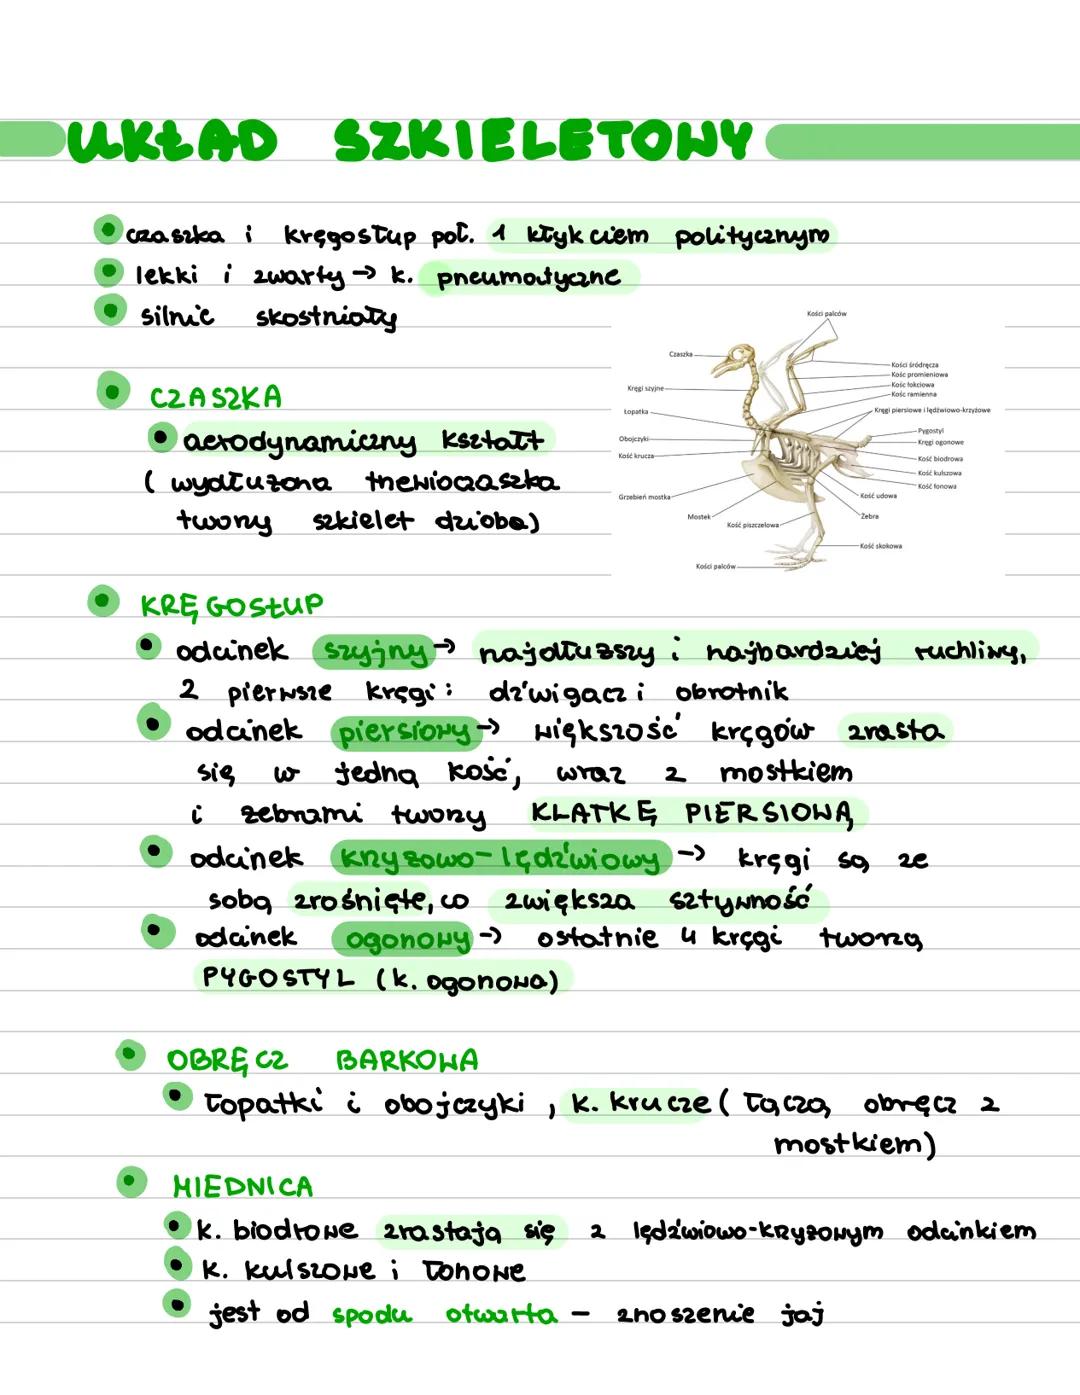 UKŁAD SZKIELETOWY
czaszka i kręgosłup poł. 1 kłykciem politycznym
lekki i zwarty → k. pneumatyczne
silnie skostniały
Kości palców
Czaszka
Kręgi szyjne
Łopatka
Obojczyki
Kość krucza
Grzebień mostka
Mostek
Kość piszczelowa
Kości palców
Kości śródręcza
Kość promieniowa
Kość łokciowa
Kość ramienna
Kręgi piersiowe i lędźwiowo-krzyżowe
Pygostyl
Kręgi ogonowe
Kość biodrowa
Kość kulszowa
Kość łonowa
Kość udowa
Żebra
Kość skokowa
CZASZKA
aerodynamiczny kształt
( wydłużona trzewioczaszka
tworzy szkielet dzioba)
KRĘGOSŁUP
odcinek szyjny → najdłuższy i najbardziej ruchliwy,
2 pierwsze kręgi: dźwigacz i obrotnik
odcinek piersiowy → większość kręgów zrasta
się w jedną kość, wraz z mostkiem
i żebrami tworzy KLATKĘ PIERSIOWĄ
odcinek krzyżowo-lędźwiowy → kręgi są ze
sobą zrośnięte, co zwiększa sztywność
odcinek ogonowy → ostatnie 4 kręgi tworzą
PYGOSTYL (k. ogonowa)
OBRĘCZ BARKOWA
łopatki i obojczyki, k. krucze ( łączą obręcz z
mostkiem)
MIEDNICA
k. biodrowe zrastają się z lędźwiowo-krzyżowym odcinkiem
k. kulszowe i łonowe
jest od spodu otwarta - znoszenie jaj